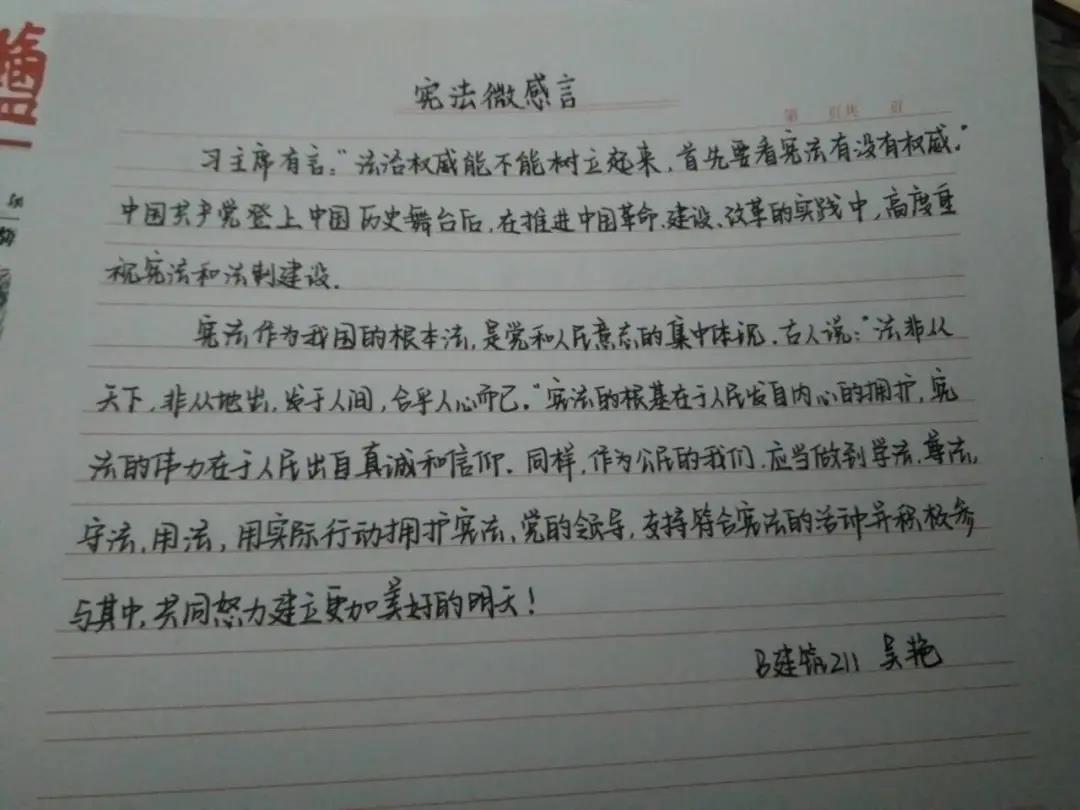 宪法微感言
第 页共 页
习主席有言："法治权威能不能树立起来，首先要看宪法有没有权威."
中国共产党登上中国历史舞台后，在推进中国革命、建设、改革的实践中，高度重
视宪法和法制建设.
宪法作为我国的根本法，是党和人民意志的集中体现.古人说："法非从
天下，非从地出，发于人间，合乎人心而已."宪法的根基在于人民发自内心的拥护，宪
法的伟力在于人民出自真诚和信仰.同样，作为公民的我们，应当做到学法，尊法，
守法，用法，用实际行动拥护宪法，党的领导，支持符合宪法的活动并积极参
与其中，共同努力建立更加美好的明天！
B建筑211 吴艳